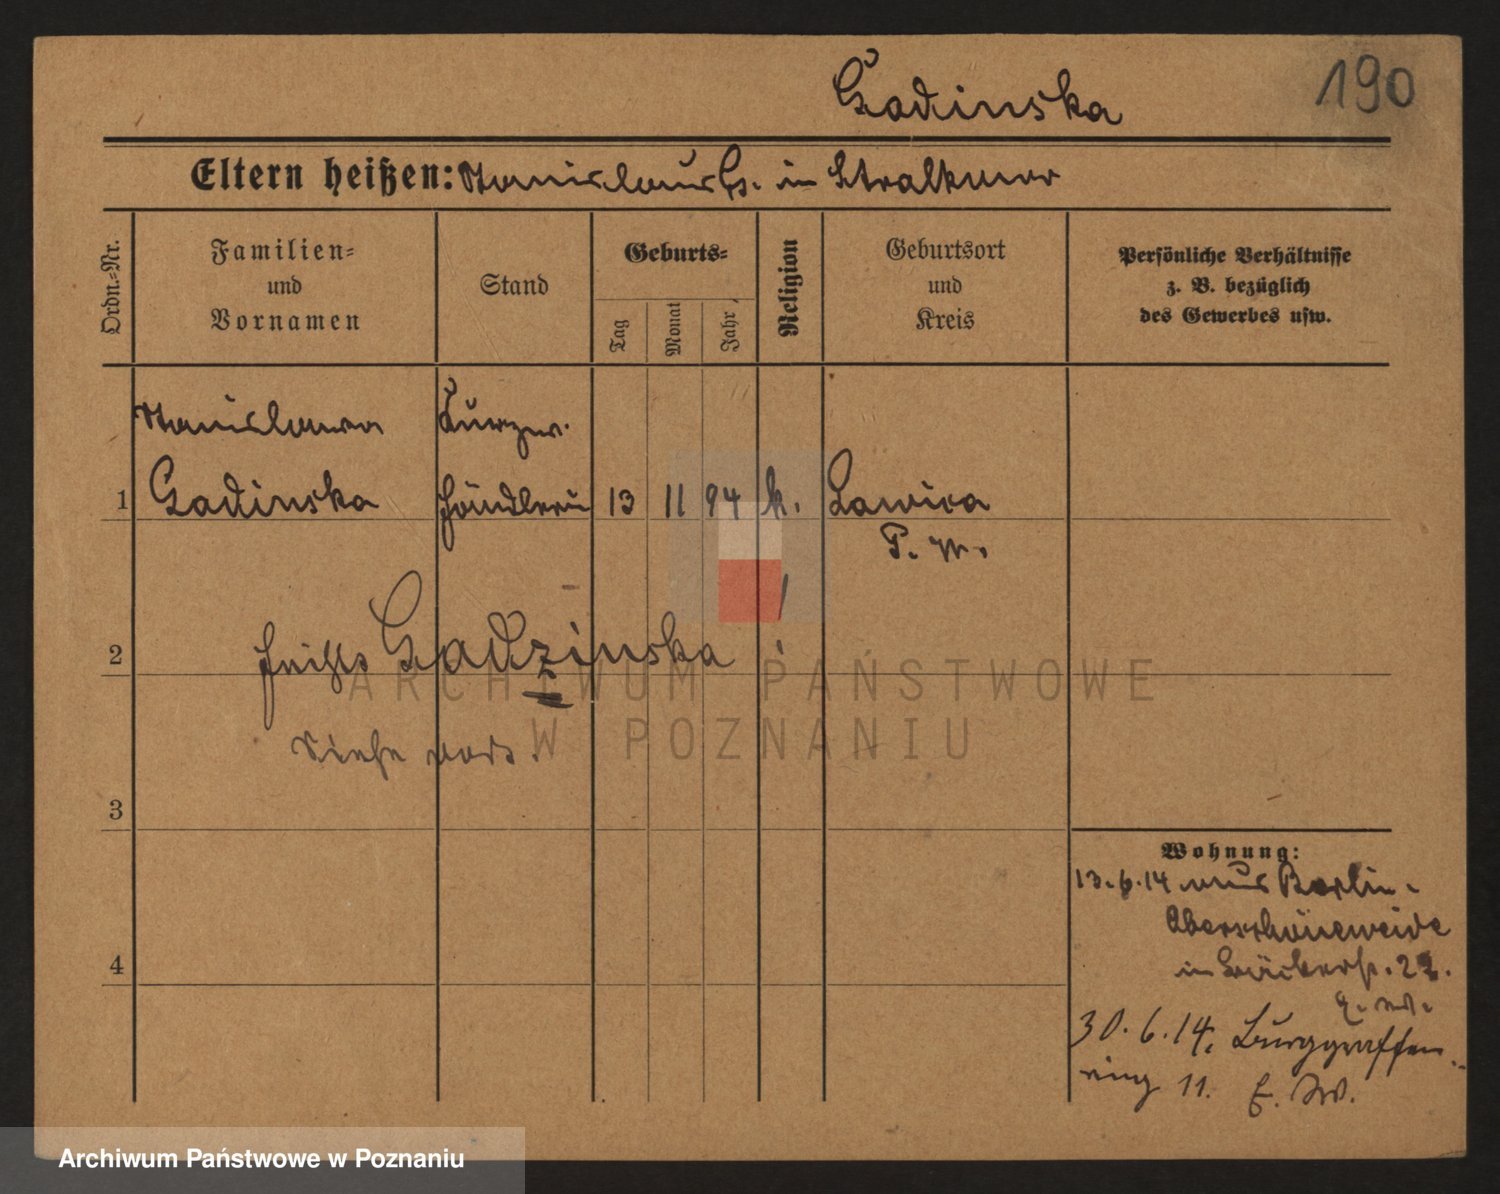 Gadinska
190
Eltern heißen: Stanislaus G. in Stralkowo
Ordn.-Nr.
Familien-
und
Vornamen
Stand
Geburts-
Tag
Monat
Jahr
Religion
Geburtsort
und
Kreis
Persönliche Verhältnisse
z. B. bezüglich
des Gewerbes usw.
Stanislawa
Gadinska
händlerin
1
13 11 94 k.
Lawica
P. W.
2
heißt Gadzinska
Siehe dort.
3
4
Wohnung:
13.6.14 aus Berlin-
Oberschöneweide
in
30.6.14. Burggrafen
ring 11.
ARCHIWUM PAŃSTWOWE
W POZNANIU
Archiwum Państwowe w Poznaniu